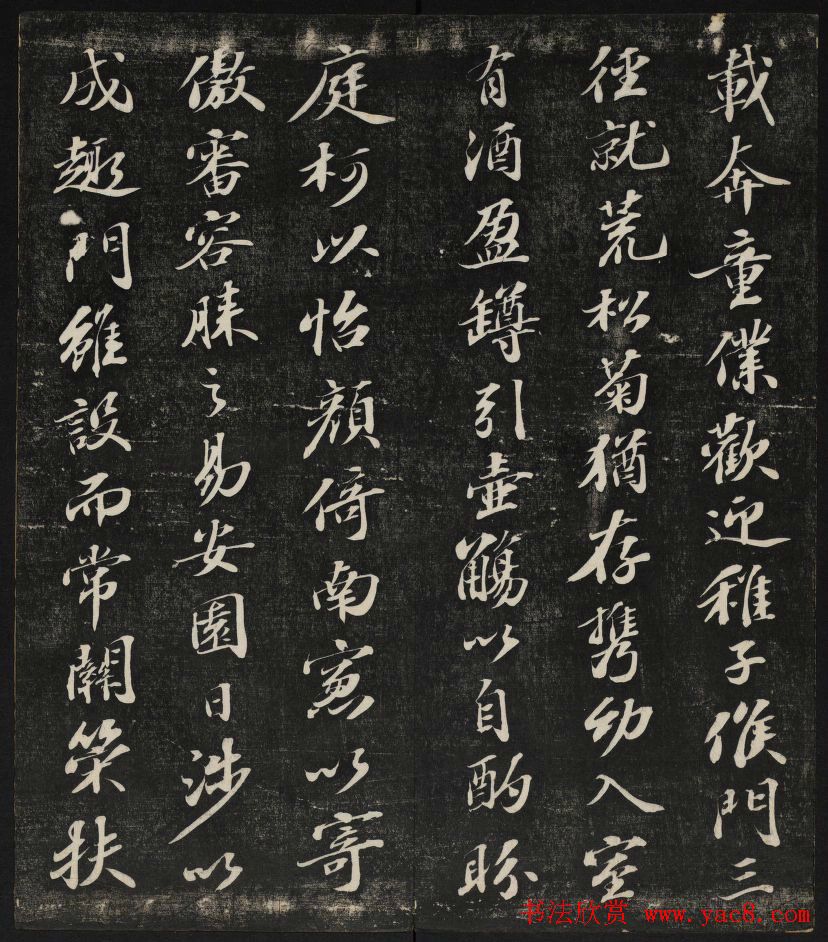 載奔童僕歡迎稚子候門三
徑就荒松菊猶存攜幼入室
有酒盈罇引壺觴以自酌眄
庭柯以怡顏倚南窻以寄
傲審容膝之易安園日涉以
成趣門雖設而常關策扶
书法欣赏 www.yac8.com